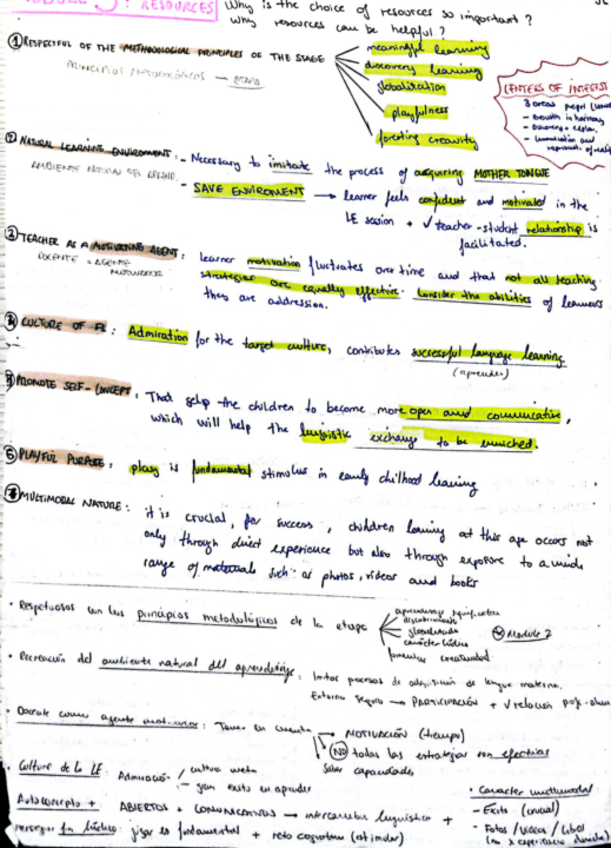 : RESOURCES
Why is the choice of resources so important?
why resources can be helpful?
① RESPECTFUL OF THE METHODOLOGICAL PRINCIPLES OF THE STAGE
meaningful learning
discovery learning
globalization
playfulness
fostering creativity
CENTERS OF INTEREST
3 areas
- Growth in harmony
- Discovering + explor.
- Communication and
② NATURAL LEARNING ENVIRONMENT: - Necessary to imitate the process of acquiring MOTHER TONGUE
- SAVE ENVIROMENT → learner feels confident and motivated in the
LE session + ✓ teacher-student relationship is
facilitated.
③ TEACHER AS A MOTIVATING AGENT: learner motivation fluctuates over time and that not all teaching
DOCENTE = AGENTE
MOTIVADOR
strategies are equally effective. Consider the abilities of learners
they are addression.
CULTURE OF FL: Admiration for the target culture, contributes successful language learning.
(aprender)
PROMOTE SELF-CONCEPT: That help the children to become more open and comunicative,
which will help the linguistic exchange to be enriched.
PLAYFUL PURPOSE: play is fundamental stimulus in early chilhood learning
MULTIMODAL NATURE: it is crucial, for success, children learning at this age occurs not
only through direct experience but also through exposure to a wide
range of materials such as photos, videos and books
• Respetuosos con los principios metodológicos de la etapa
aprendizaje significativo
globalizado
carácter lúdico
fomentar creatividad
Module 2
• Recreación del ambiente natural del aprendizaje: Imitar procesos de adquisición de lengua materna.
Entorno seguro → PARTICIPACIÓN + ✓ relación prof-alum
• Docente como agente motivador: Tener en cuenta → MOTIVACIÓN (tiempo)
NO todas las estrategias son efectivas
Saber capacidades
• Cultura de la LE: Admiración / cultura meta
- gran éxito en aprender
Autoconcepto +: ABIERTOS + COMUNICATIVOS → intercambio lingüístico +
perseguir fin lúdico: jugar es fundamental + reto cognitivo (estimular)
• Carácter multimodal
- Éxito (crucial)
- Fotos/vídeos/libros